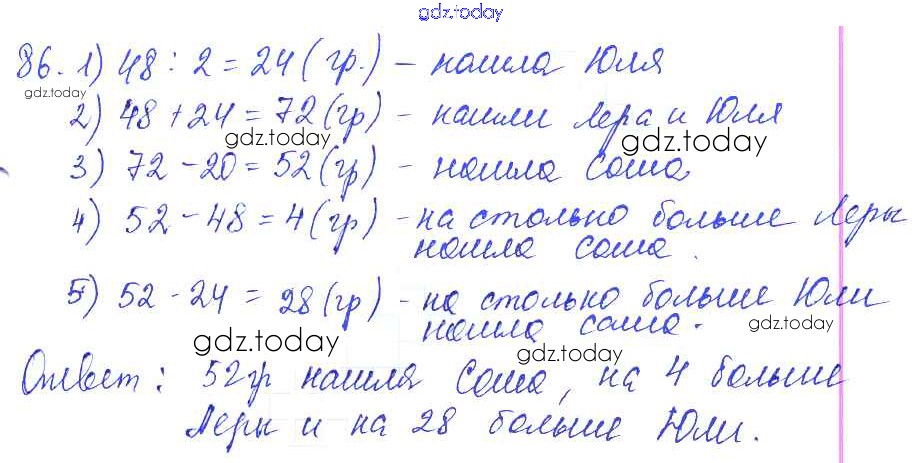 gdz.today
86. 1) 48 : 2 = 24 (гр.) – нашла Юля
gdz.today
2) 48 + 24 = 72 (гр) – нашли Лера и Юля
gdz.today gdz.today
3) 72 – 20 = 52 (гр) – нашла Саша
4) 52 – 48 = 4 (гр) – на столько больше Леры
нашла Саша.
5) 52 – 24 = 28 (гр) – на столько больше Юли
нашла Саша.
gdz.today
gdz.today gdz.today
Ответ: 52 гр нашла Саша, на 4 больше
Леры и на 28 больше Юли.